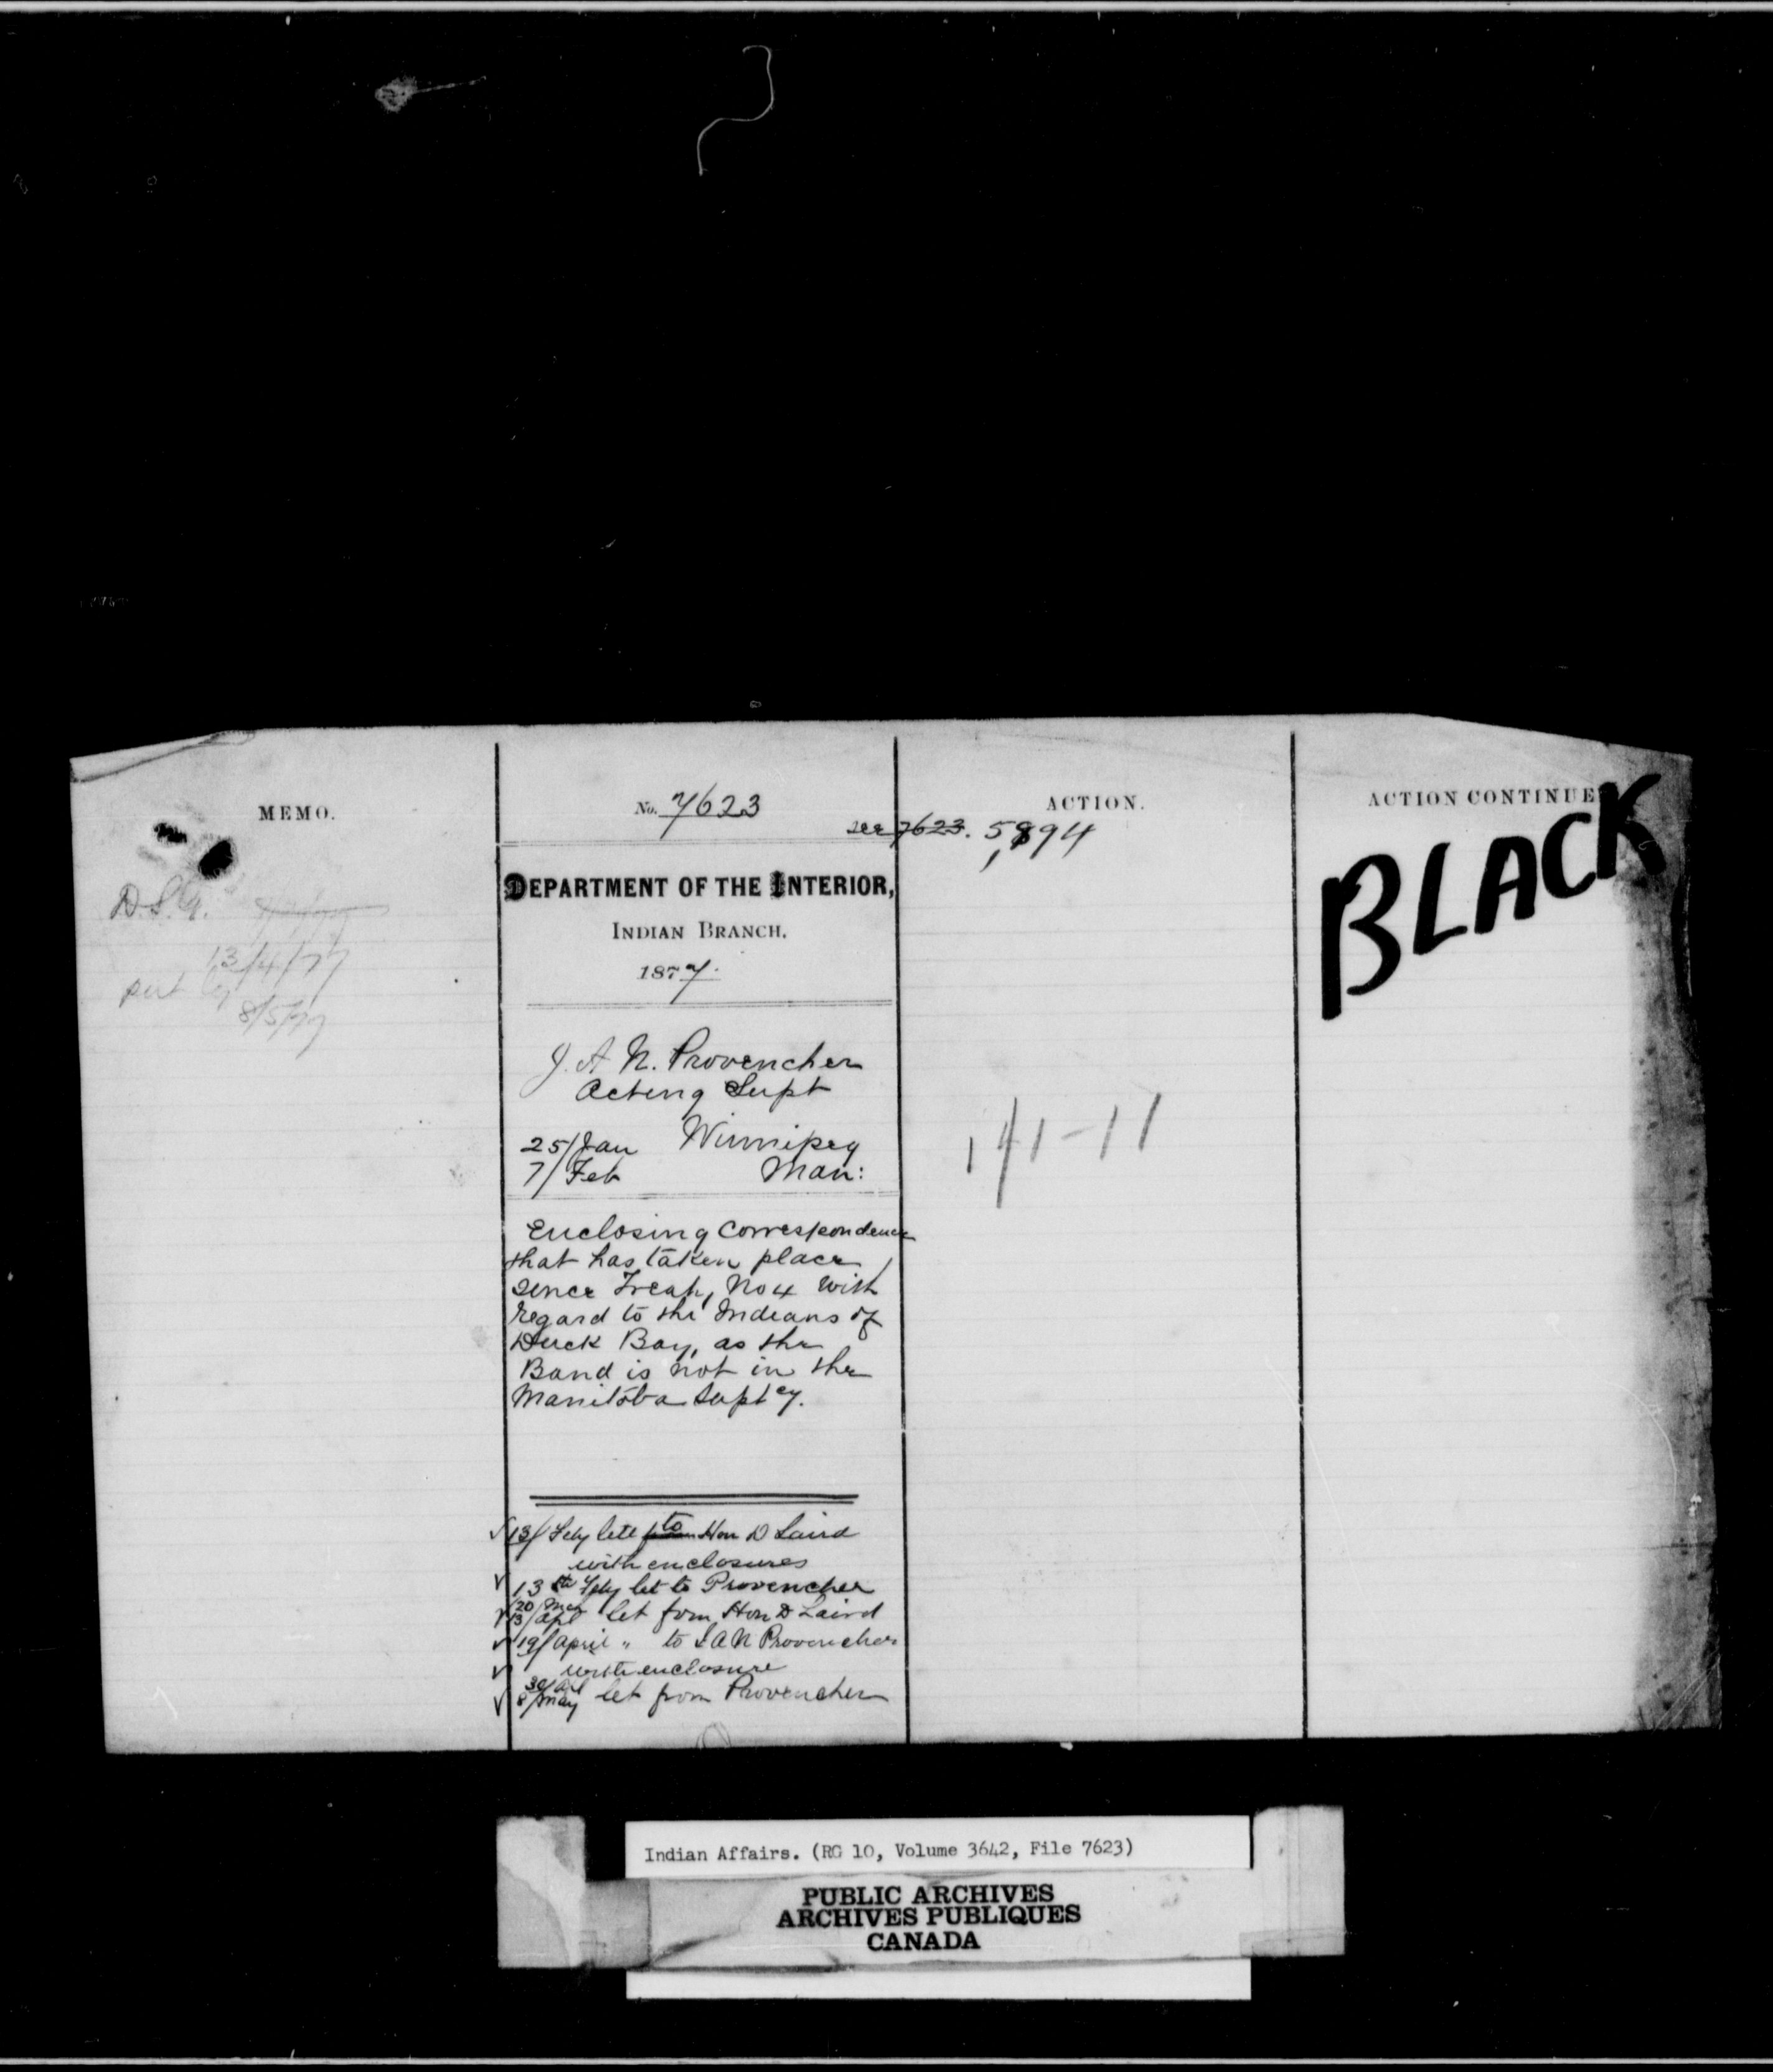 MEMO.
D.S.G.
13/4/77
put by
8/5/77
No. 7623
DEPARTMENT OF THE INTERIOR,
INDIAN BRANCH.
1877.
J. A. N. Provencher
Acting Supt
25/Jan Winnipeg
7/Feb Man:
Enclosing Correspondence
that has taken place
since Treaty No 4 with
regard to the Indians of
Duck Bay, as the
Band is not in the
Manitoba Suptcy.
13/ Feby lett to Hon D Laird
with enclosures
13th Feby let to Provencher
20/Mch
13/Apl let from Hon D Laird
19/April " to J A N Provencher
with enclosure
30/Apl
8/May let from Provencher
ACTION.
see 7623. 5,894
141-11
ACTION CONTINUE
BLACK
Indian Affairs. (RG 10, Volume 3642, File 7623)
PUBLIC ARCHIVES
ARCHIVES PUBLIQUES
CANADA